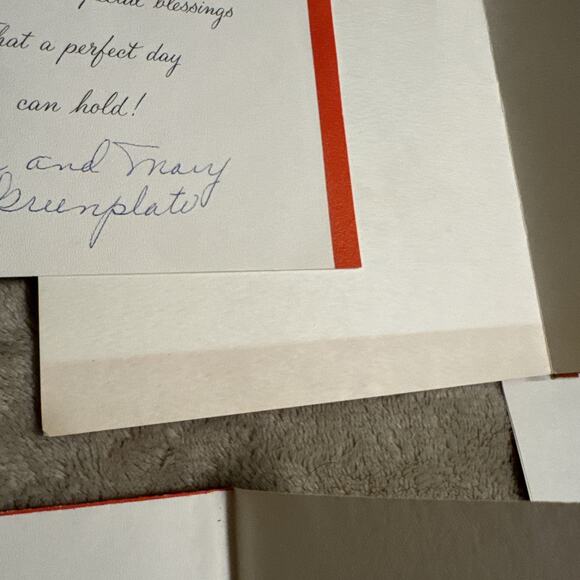 blessings
that a perfect day
can hold!
and Mary
Greenplate